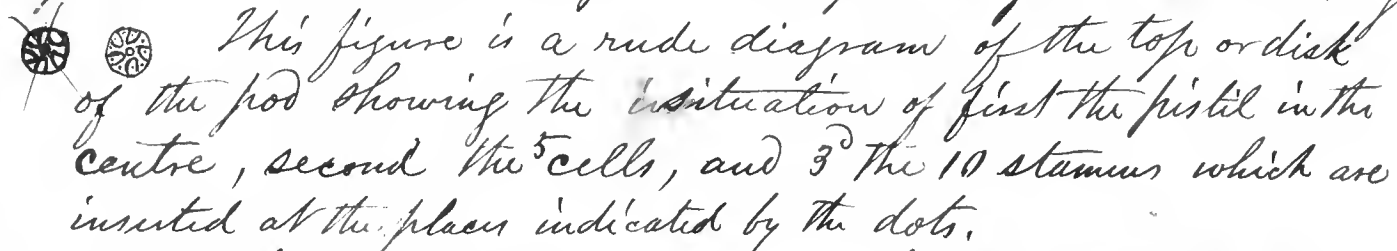 This figure is a rude diagram of the top or disk
of the pod showing the situation of first the pistil in the
centre, second the 5 cells, and 3d the 10 stamens which are
inserted at the places indicated by the dots.